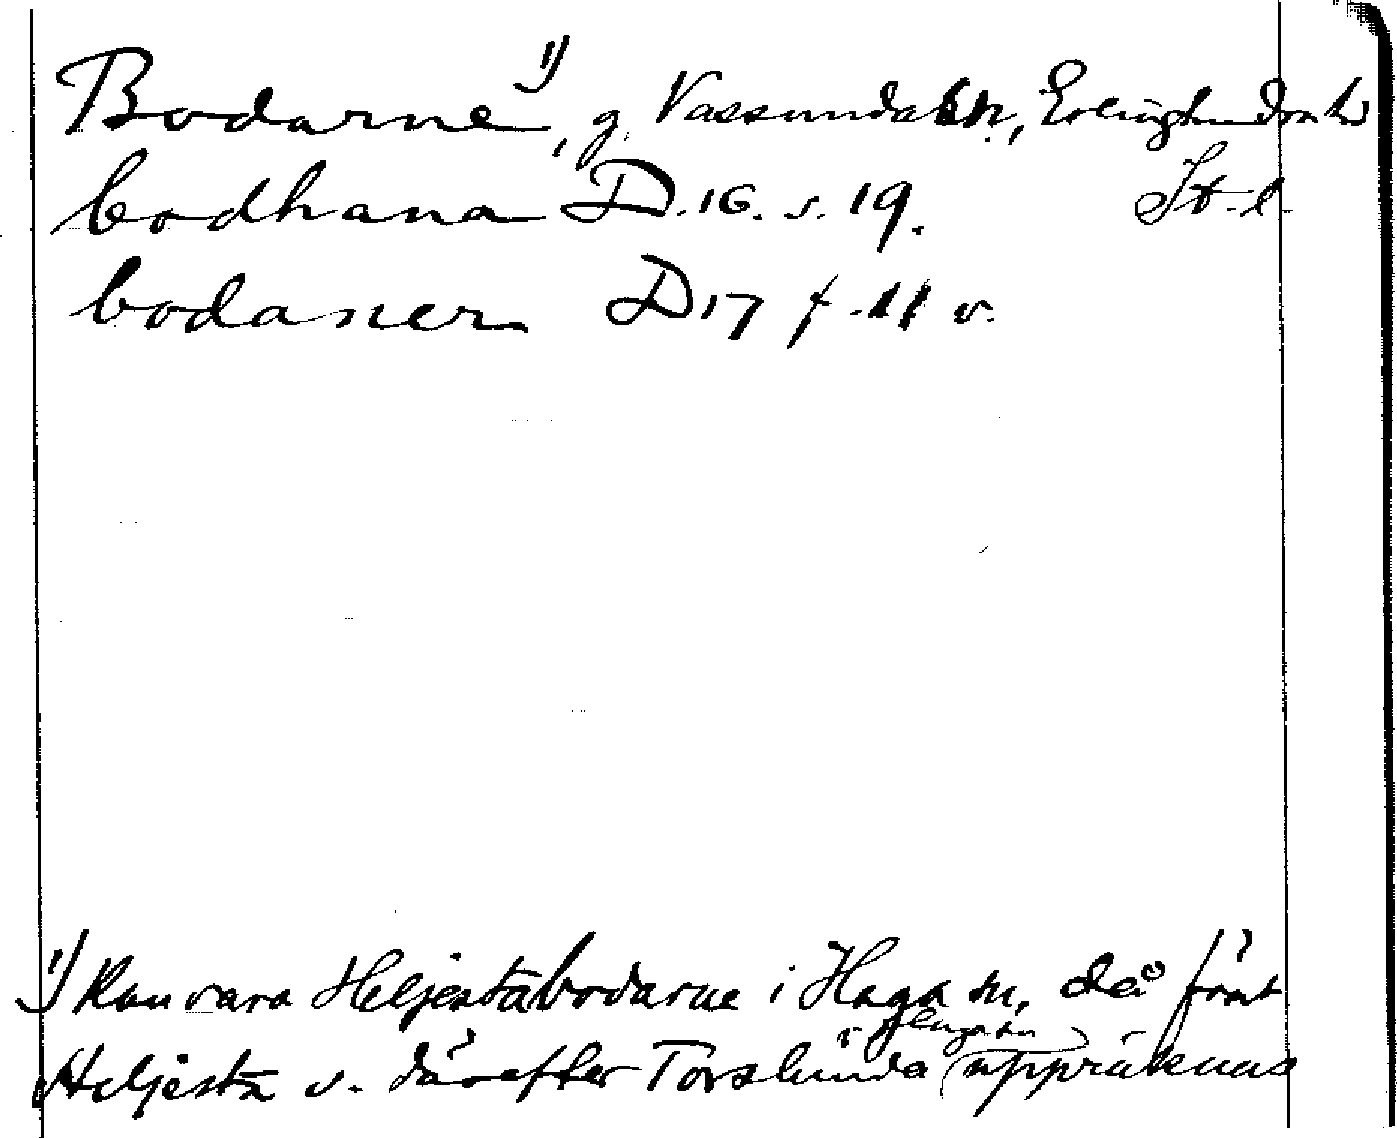 Bodarne 1), g. Vassunda sn., Erlinghundra hd
St. l.
bodhana D. 16. s. 19.
bodaner D 17 f. 11 v.
1) Kan vara Heljestabodarne i Haga sn, då först
Heljesta v. därefter Torslunda (uppräknas